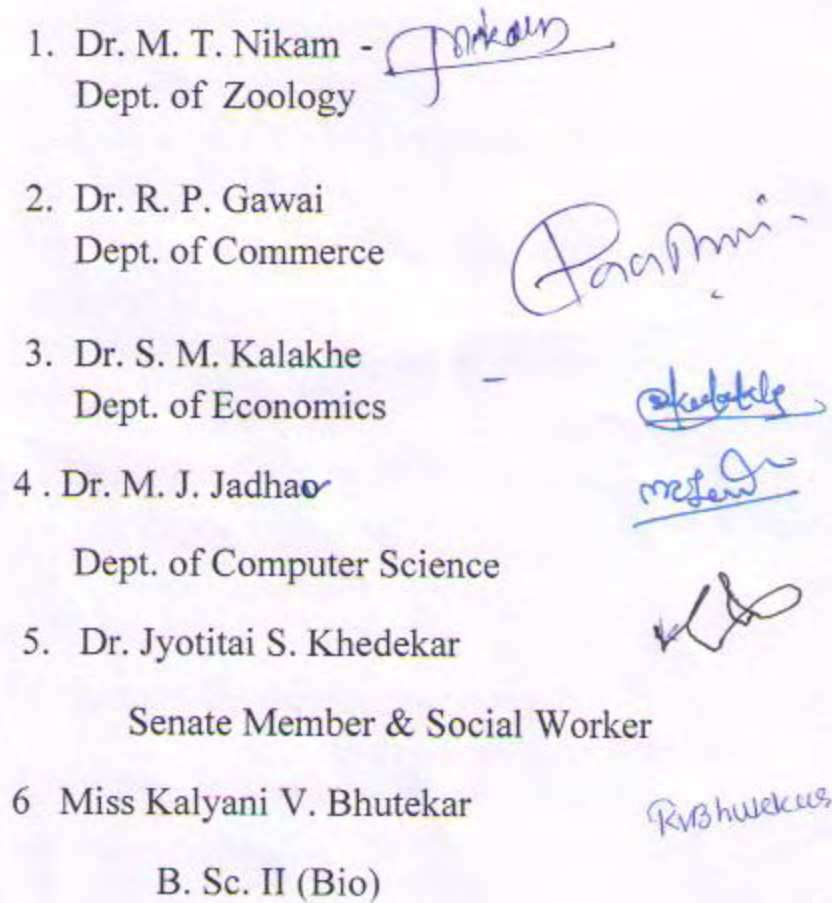 1. Dr. M. T. Nikam -
Dept. of Zoology
2. Dr. R. P. Gawai
Dept. of Commerce
3. Dr. S. M. Kalakhe -
Dept. of Economics
4 . Dr. M. J. Jadhav
Dept. of Computer Science
5. Dr. Jyotitai S. Khedekar
Senate Member & Social Worker
6 Miss Kalyani V. Bhutekar
B. Sc. II (Bio)